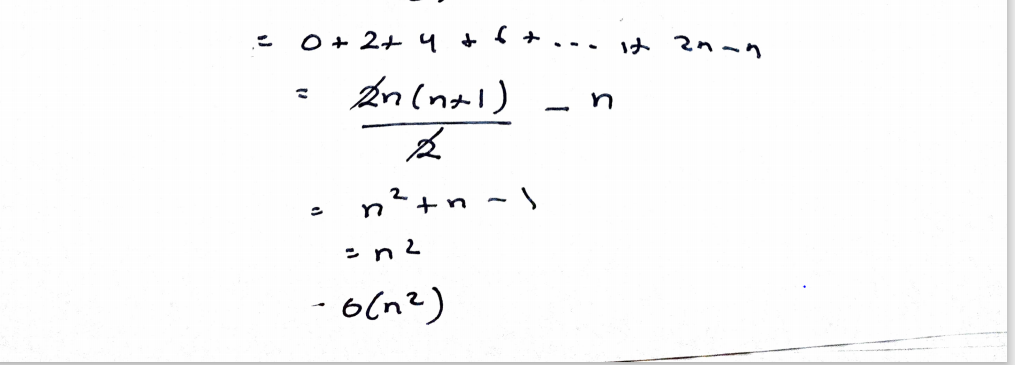 = 0 + 2 + 4 + 6 + ... + 2n - n
= 2n(n+1)/2 - n
= n² + n - 1
= n²
- O(n²)